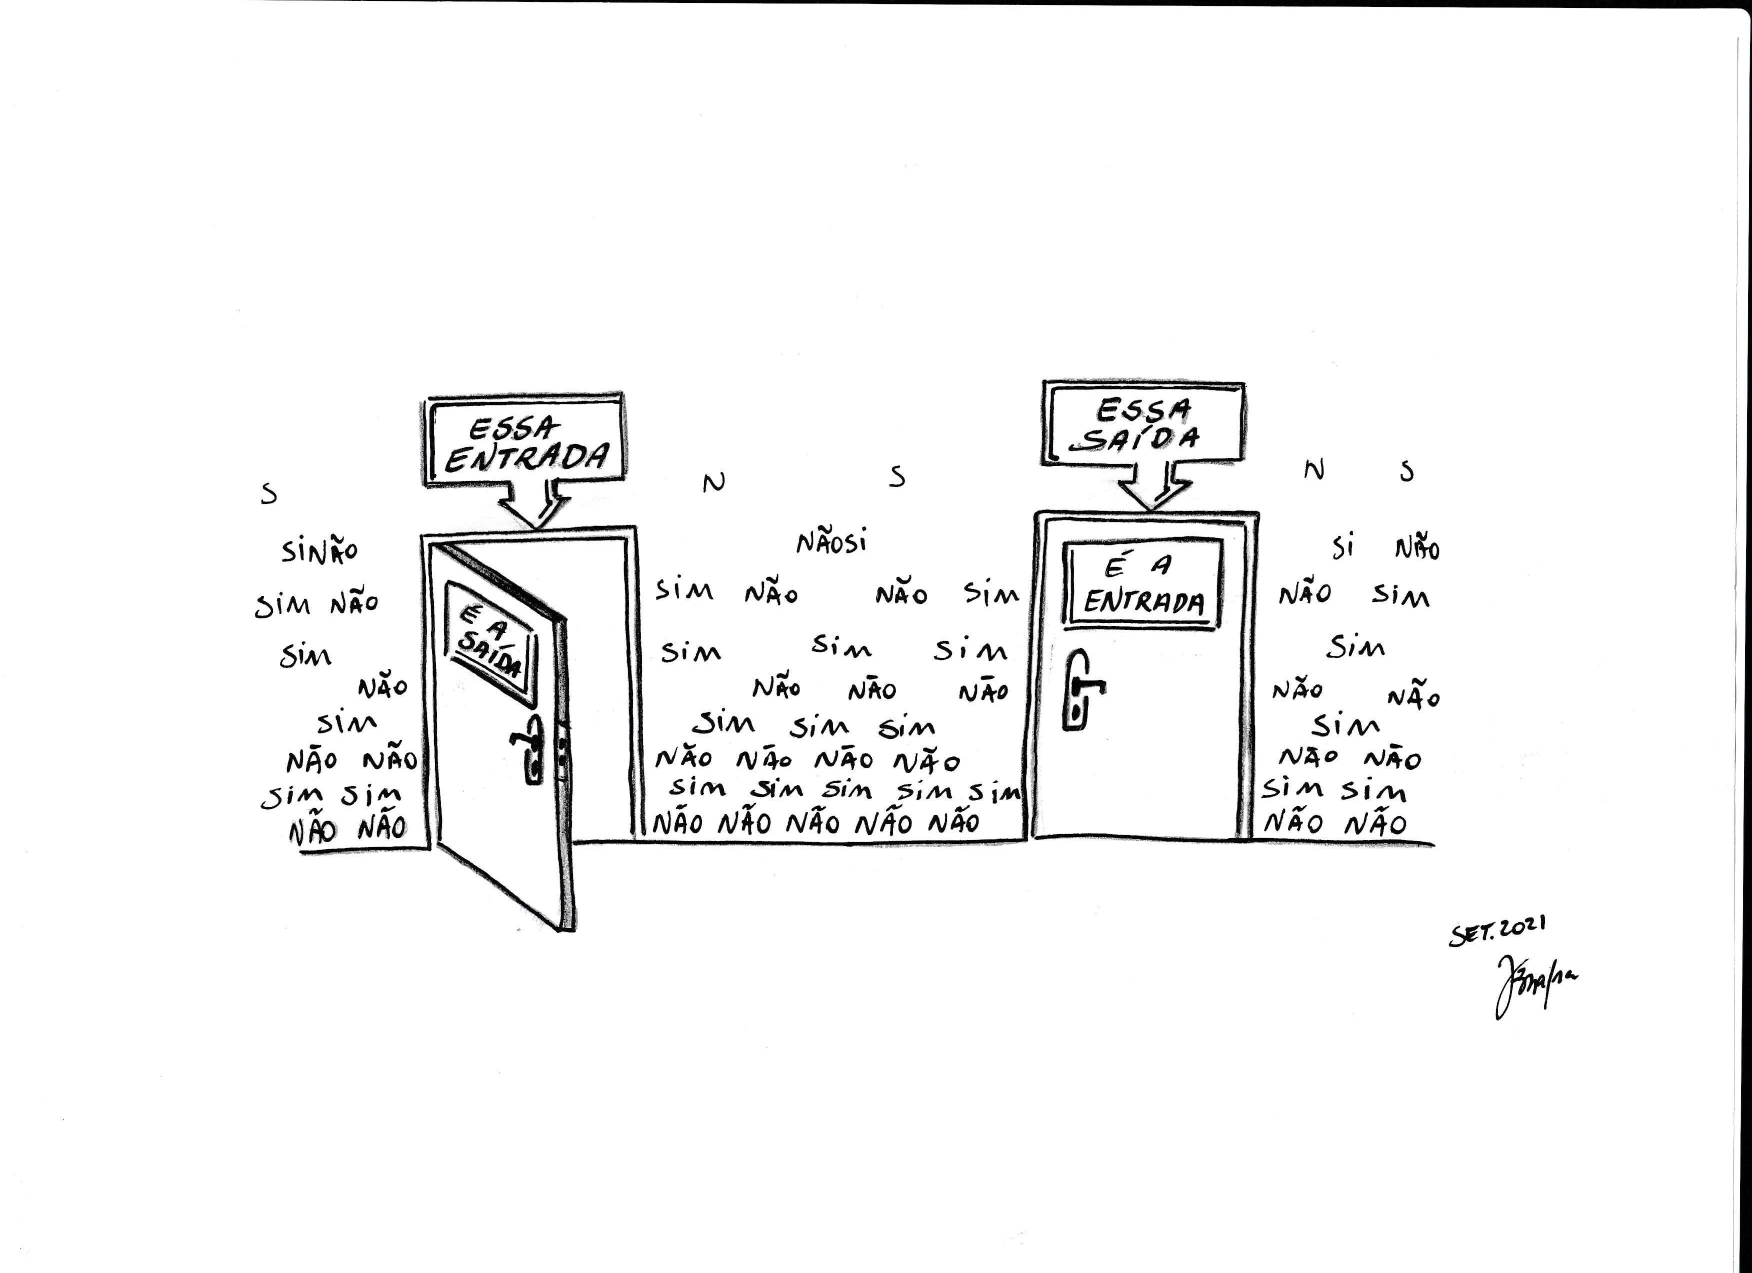 ESSA
ENTRADA
ESSA
SAÍDA
S
N
S
N
S
SINÃO
NÃOSI
SI NÃO
SIM NÃO
SIM NÃO
NÃO SIM
NÃO SIM
SIM
SIM
SIM
SIM
SIM
NÃO
NÃO
NÃO
NÃO
NÃO
NÃO
SIM
SIM SIM SIM
SIM
NÃO NÃO
NÃO NÃO NÃO NÃO
NÃO NÃO
SIM SIM
SIM SIM SIM SIM SIM
SIM SIM
NÃO NÃO
NÃO NÃO NÃO NÃO NÃO
NÃO NÃO
É A
SAÍDA
É A
ENTRADA
SET. 2021